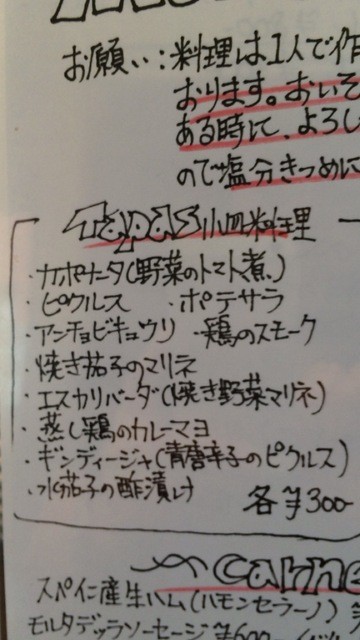 お願い：料理は1人で作
おります。おいそ
ある時に、よろし
ので塩分きつめに
Tapas 小皿料理
・カポナータ(野菜のトマト煮)
・ピクルス ・ポテサラ
・アンチョビキュウリ ・鶏のスモーク
・焼き茄子のマリネ
・エスカリバーダ(焼き野菜マリネ)
・蒸し鶏のカレーマヨ
・ギンディージャ(青唐辛子のピクルス)
・水茄子の酢漬け
各¥300-
Carne
スペイン産生ハム(ハモンセラーノ)
モルタデッラソーセージ ¥600